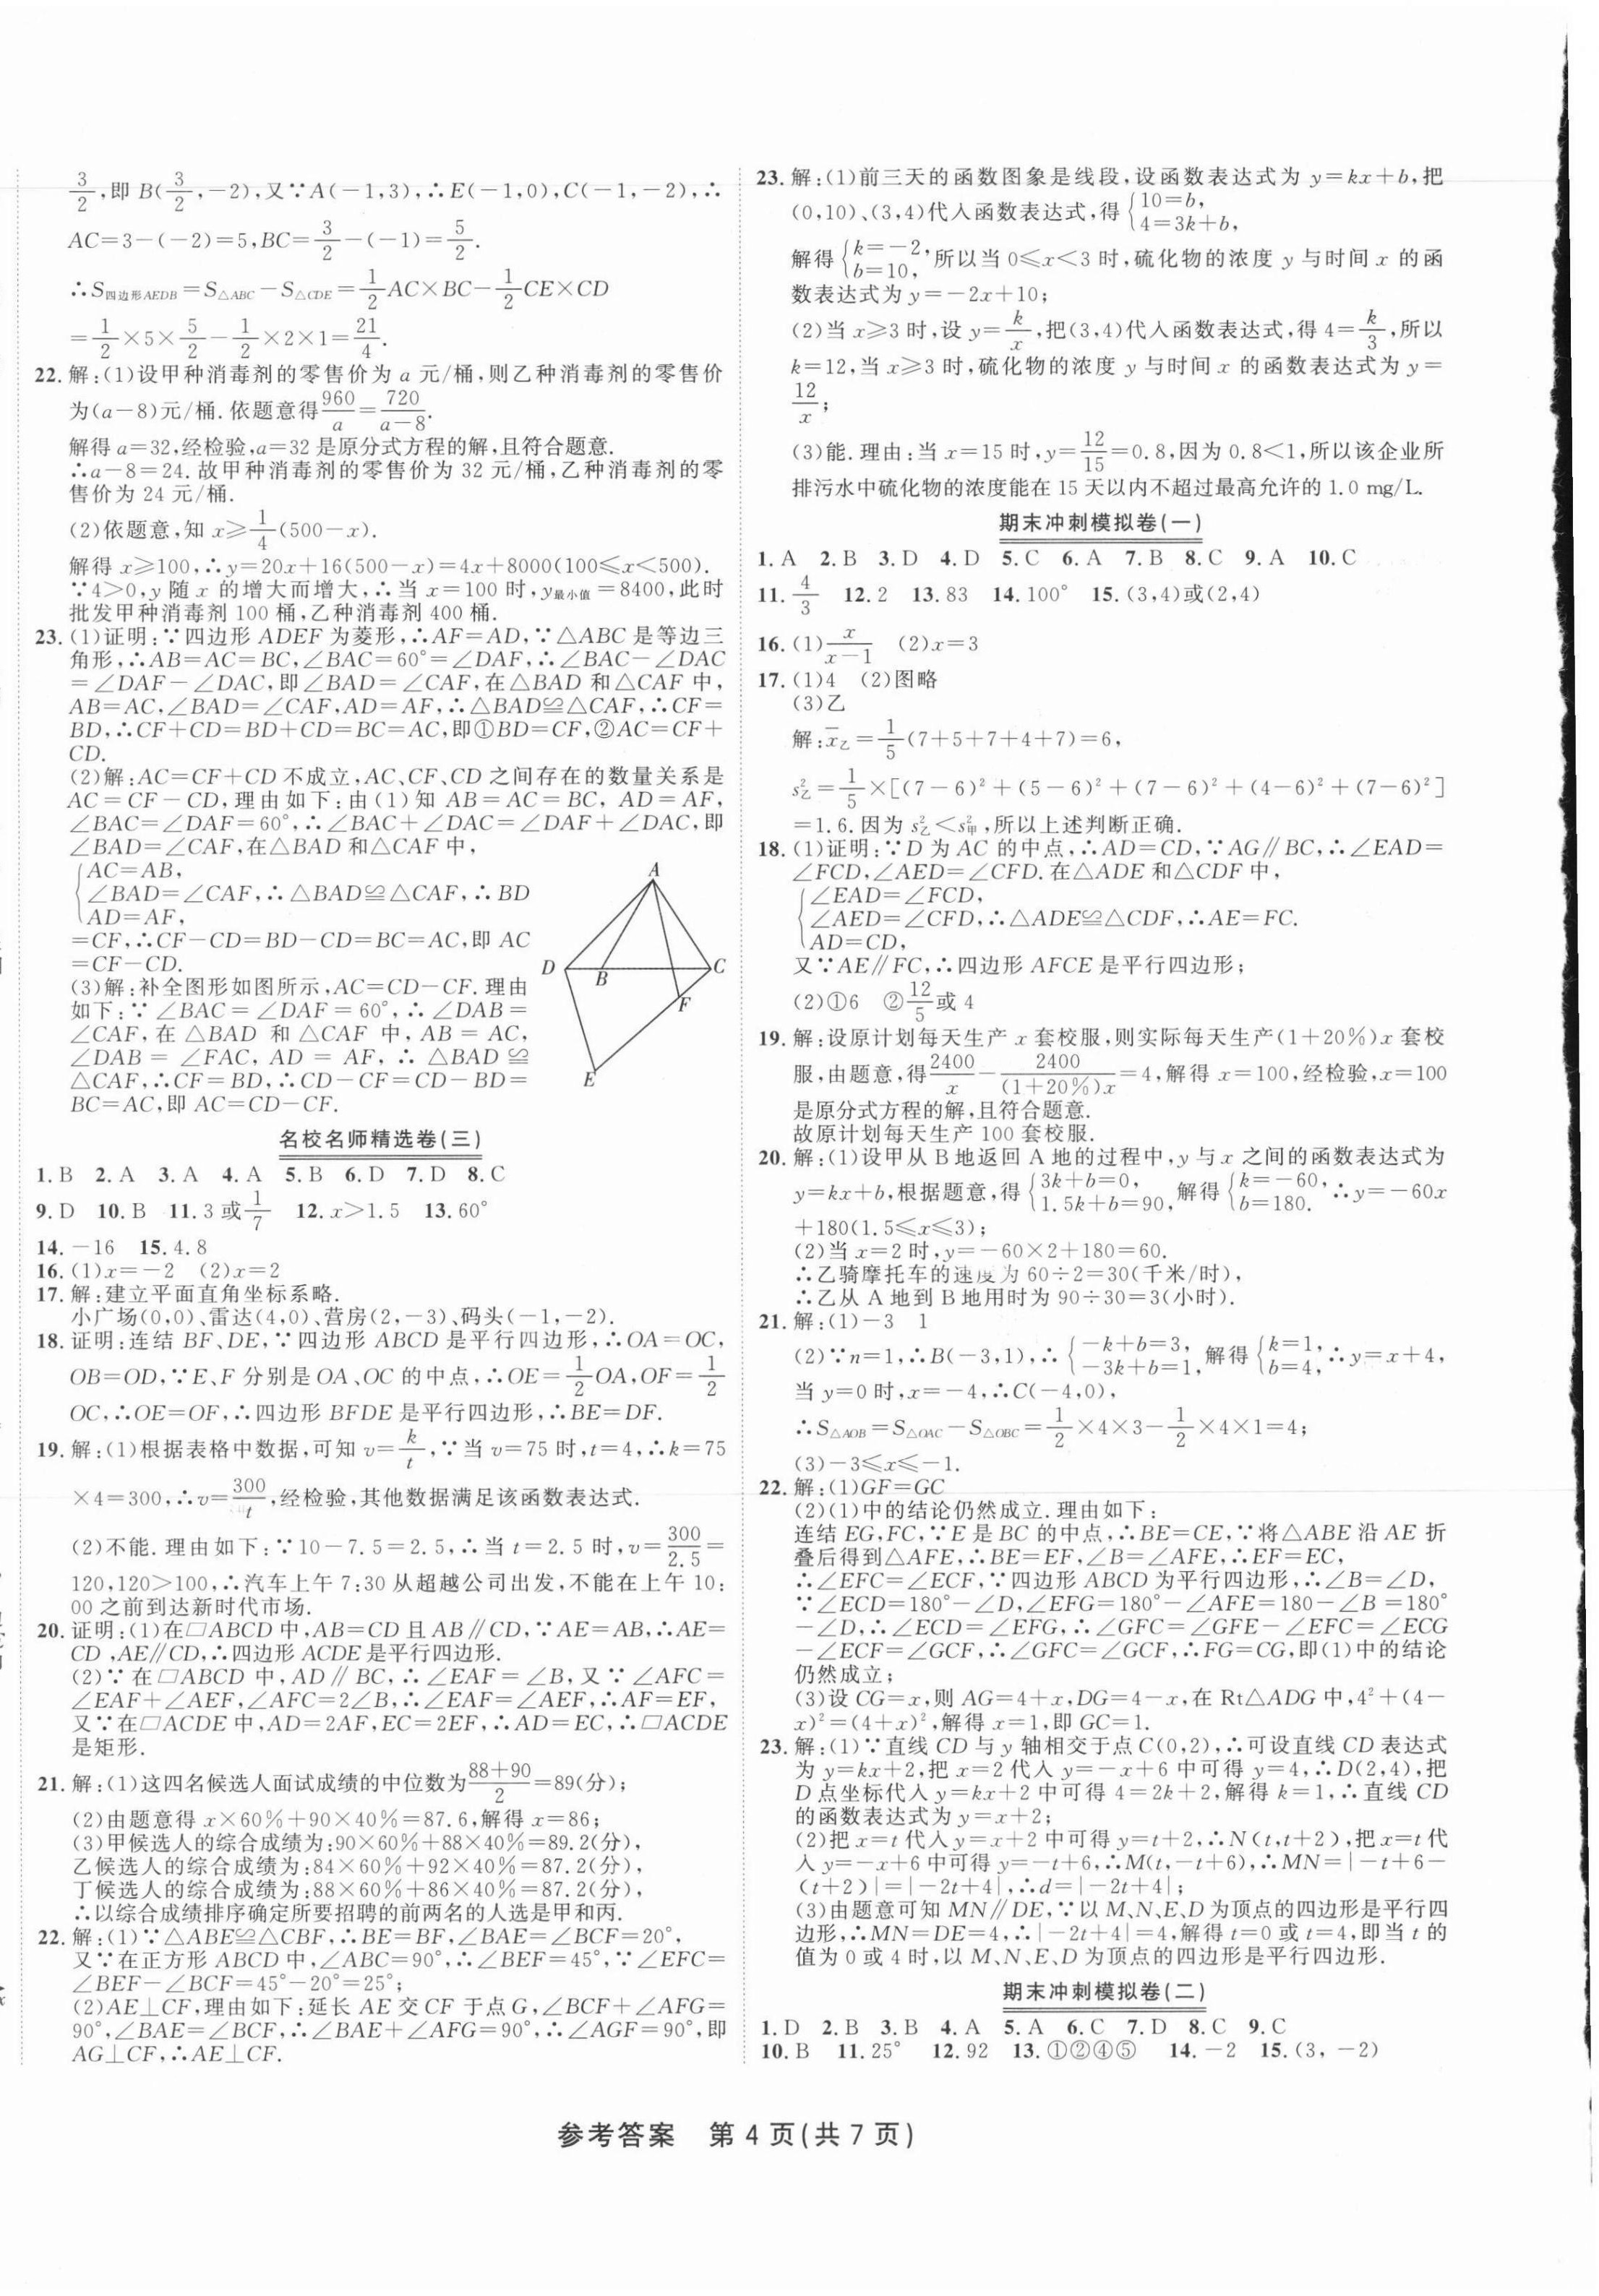 3/2,即 B(3/2,-2),又∵A(-1,3),∴E(-1,0),C(-1,-2),∴
AC=3-(-2)=5,BC=3/2-(-1)=5/2.
∴S四边形AEDB=S△ABC-S△CDE=1/2AC×BC-1/2CE×CD
=1/2×5×5/2-1/2×2×1=21/4.
22.解:(1)设甲种消毒剂的零售价为 a 元/桶,则乙种消毒剂的零售价
为(a-8)元/桶.依题意得960/a=720/(a-8).
解得 a=32,经检验,a=32 是原分式方程的解,且符合题意.
∴a-8=24.故甲种消毒剂的零售价为 32 元/桶,乙种消毒剂的零
售价为 24 元/桶.
(2)依题意,知 x≥1/4(500-x).
解得 x≥100,∴y=20x+16(500-x)=4x+8000(100≤x<500).
∵4>0,y 随 x 的增大而增大,∴当 x=100 时,y最小值=8400,此时
批发甲种消毒剂 100 桶,乙种消毒剂 400 桶.
23.(1)证明:∵四边形 ADEF 为菱形,∴AF=AD,∵△ABC 是等边三
角形,∴AB=AC=BC,∠BAC=60°=∠DAF,∴∠BAC-∠DAC
=∠DAF-∠DAC,即∠BAD=∠CAF,在△BAD 和△CAF 中,
AB=AC,∠BAD=∠CAF,AD=AF,∴△BAD≌△CAF,∴CF=
BD,∴CF+CD=BD+CD=BC=AC,即①BD=CF,②AC=CF+
CD.
(2)解:AC=CF+CD 不成立,AC、CF、CD 之间存在的数量关系是
AC=CF-CD,理由如下:由(1)知 AB=AC=BC, AD=AF,
∠BAC=∠DAF=60°,∴∠BAC+∠DAC=∠DAF+∠DAC,即
∠BAD=∠CAF,在△BAD 和△CAF 中,
{AC=AB,
∠BAD=∠CAF,∴△BAD≌△CAF,∴BD
AD=AF,
=CF,∴CF-CD=BD-CD=BC=AC,即 AC
=CF-CD.
(3)解:补全图形如图所示,AC=CD-CF.理由
如下:∵∠BAC=∠DAF=60°,∴∠DAB=
∠CAF,在 △BAD 和 △CAF 中, AB = AC,
∠DAB = ∠FAC, AD = AF, ∴ △BAD ≌
△CAF,∴CF=BD,∴CD-CF=CD-BD=
BC=AC,即 AC=CD-CF.
A
D
B
C
F
E
名校名师精选卷(三)
1.B 2.A 3.A 4.A 5.B 6.D 7.D 8.C
9.D 10.B 11.3 或1/7 12.x>1.5 13.60°
14.-16 15.4.8
16.(1)x=-2 (2)x=2
17.解:建立平面直角坐标系略.
小广场(0,0)、雷达(4,0)、营房(2,-3)、码头(-1,-2).
18.证明:连结 BF、DE,∵四边形 ABCD 是平行四边形,∴OA=OC,
OB=OD,∵E、F 分别是 OA、OC 的中点,∴OE=1/2OA,OF=1/2
OC,∴OE=OF,∴四边形 BFDE 是平行四边形,∴BE=DF.
19.解:(1)根据表格中数据,可知 v=k/t,∵当 v=75 时,t=4,∴k=75
×4=300,∴v=300/t,经检验,其他数据满足该函数表达式.
(2)不能.理由如下:∵10-7.5=2.5,∴当 t=2.5 时,v=300/2.5=
120,120>100,∴汽车上午 7:30 从超越公司出发,不能在上午 10:
00 之前到达新时代市场.
20.证明:(1)在▱ABCD 中,AB=CD 且 AB∥CD,∵AE=AB,∴AE=
CD,AE∥CD,∴四边形 ACDE 是平行四边形.
(2)∵在▱ABCD 中,AD∥BC,∴∠EAF=∠B,又∵∠AFC=
∠EAF+∠AEF,∠AFC=2∠B,∴∠EAF=∠AEF,∴AF=EF,
又∵在▱ACDE 中,AD=2AF,EC=2EF,∴AD=EC,∴▱ACDE
是矩形.
21.解:(1)这四名候选人面试成绩的中位数为(88+90)/2=89(分);
(2)由题意得 x×60%+90×40%=87.6,解得 x=86;
(3)甲候选人的综合成绩为:90×60%+88×40%=89.2(分),
乙候选人的综合成绩为:84×60%+92×40%=87.2(分),
丁候选人的综合成绩为:88×60%+86×40%=87.2(分),
∴以综合成绩排序确定所要招聘的前两名的人选是甲和丙.
22.解:(1)∵△ABE≌△CBF,∴BE=BF,∠BAE=∠BCF=20°,
又∵在正方形 ABCD 中,∠ABC=90°,∴∠BEF=45°,∵∠EFC=
∠BEF-∠BCF=45°-20°=25°;
(2)AE⊥CF,理由如下:延长 AE 交 CF 于点 G,∠BCF+∠AFG=
90°,∠BAE=∠BCF,∴∠BAE+∠AFG=90°,∴∠AGF=90°,即
AG⊥CF,∴AE⊥CF.
23.解:(1)前三天的函数图象是线段,设函数表达式为 y=kx+b,把
(0,10)、(3,4)代入函数表达式,得{10=b, 4=3k+b,
解得{k=-2, b=10,所以当 0≤x<3 时,硫化物的浓度 y 与时间 x 的函
数表达式为 y=-2x+10;
(2)当 x≥3 时,设 y=k/x,把(3,4)代入函数表达式,得 4=k/3,所以
k=12,当 x≥3 时,硫化物的浓度 y 与时间 x 的函数表达式为 y=
12/x;
(3)能.理由:当 x=15 时,y=12/15=0.8,因为 0.8<1,所以该企业所
排污水中硫化物的浓度能在 15 天以内不超过最高允许的 1.0 mg/L.
期末冲刺模拟卷(一)
1.A 2.B 3.D 4.D 5.C 6.A 7.B 8.C 9.A 10.C
11.4/3 12.2 13.83 14.100° 15.(3,4)或(2,4)
16.(1)x/(x-1) (2)x=3
17.(1)4 (2)图略
(3)乙
解:x̄乙=1/5(7+5+7+4+7)=6,
s²乙=1/5×[(7-6)²+(5-6)²+(7-6)²+(4-6)²+(7-6)²]
=1.6.因为 s²乙<s²甲,所以上述判断正确.
18.(1)证明:∵D 为 AC 的中点,∴AD=CD,∵AG∥BC,∴∠EAD=
∠FCD,∠AED=∠CFD.在△ADE 和△CDF 中,
{∠EAD=∠FCD,
∠AED=∠CFD,∴△ADE≌△CDF,∴AE=FC.
AD=CD,
又∵AE∥FC,∴四边形 AFCE 是平行四边形;
(2)①6 ②12/5或 4
19.解:设原计划每天生产 x 套校服,则实际每天生产(1+20%)x 套校
服,由题意,得2400/x-2400/((1+20%)x)=4,解得 x=100,经检验,x=100
是原分式方程的解,且符合题意.
故原计划每天生产 100 套校服.
20.解:(1)设甲从 B 地返回 A 地的过程中,y 与 x 之间的函数表达式为
y=kx+b,根据题意,得{3k+b=0, 1.5k+b=90,解得{k=-60, b=180.∴y=-60x
+180(1.5≤x≤3);
(2)当 x=2 时,y=-60×2+180=60.
∴乙骑摩托车的速度为 60÷2=30(千米/时),
∴乙从 A 地到 B 地用时为 90÷30=3(小时).
21.解:(1)-3 1
(2)∵n=1,∴B(-3,1),∴{-k+b=3, -3k+b=1,解得{k=1, b=4,∴y=x+4,
当 y=0 时,x=-4,∴C(-4,0),
∴S△AOB=S△OAC-S△OBC=1/2×4×3-1/2×4×1=4;
(3)-3≤x≤-1.
22.解:(1)GF=GC
(2)(1)中的结论仍然成立.理由如下:
连结 EG,FC,∵E 是 BC 的中点,∴BE=CE,∵将△ABE 沿 AE 折
叠后得到△AFE,∴BE=EF,∠B=∠AFE,∴EF=EC,
∴∠EFC=∠ECF,∵四边形 ABCD 为平行四边形,∴∠B=∠D,
∵∠ECD=180°-∠D,∠EFG=180°-∠AFE=180-∠B=180°
-∠D,∴∠ECD=∠EFG,∴∠GFC=∠GFE-∠EFC=∠ECG
-∠ECF=∠GCF,∴∠GFC=∠GCF,∴FG=CG,即(1)中的结论
仍然成立;
(3)设 CG=x,则 AG=4+x,DG=4-x,在 Rt△ADG 中,4²+(4-
x)²=(4+x)²,解得 x=1,即 GC=1.
23.解:(1)∵直线 CD 与 y 轴相交于点 C(0,2),∴可设直线 CD 表达式
为 y=kx+2,把 x=2 代入 y=-x+6 中可得 y=4,∴D(2,4),把
D 点坐标代入 y=kx+2 中可得 4=2k+2,解得 k=1,∴直线 CD
的函数表达式为 y=x+2;
(2)把 x=t 代入 y=x+2 中可得 y=t+2,∴N(t,t+2),把 x=t 代
入 y=-x+6 中可得 y=-t+6,∴M(t,-t+6),∴MN=|-t+6-
(t+2)|=|-2t+4|,∴d=|-2t+4|;
(3)由题意可知 MN∥DE,∵以 M、N、E、D 为顶点的四边形是平行四
边形,∴MN=DE=4,∴|-2t+4|=4,解得 t=0 或 t=4,即当 t 的
值为 0 或 4 时,以 M、N、E、D 为顶点的四边形是平行四边形.
期末冲刺模拟卷(二)
1.D 2.B 3.B 4.A 5.A 6.C 7.D 8.C 9.C
10.B 11.25° 12.92 13.①②④⑤ 14.-2 15.(3, -2)
参考答案 第 4 页(共 7 页)